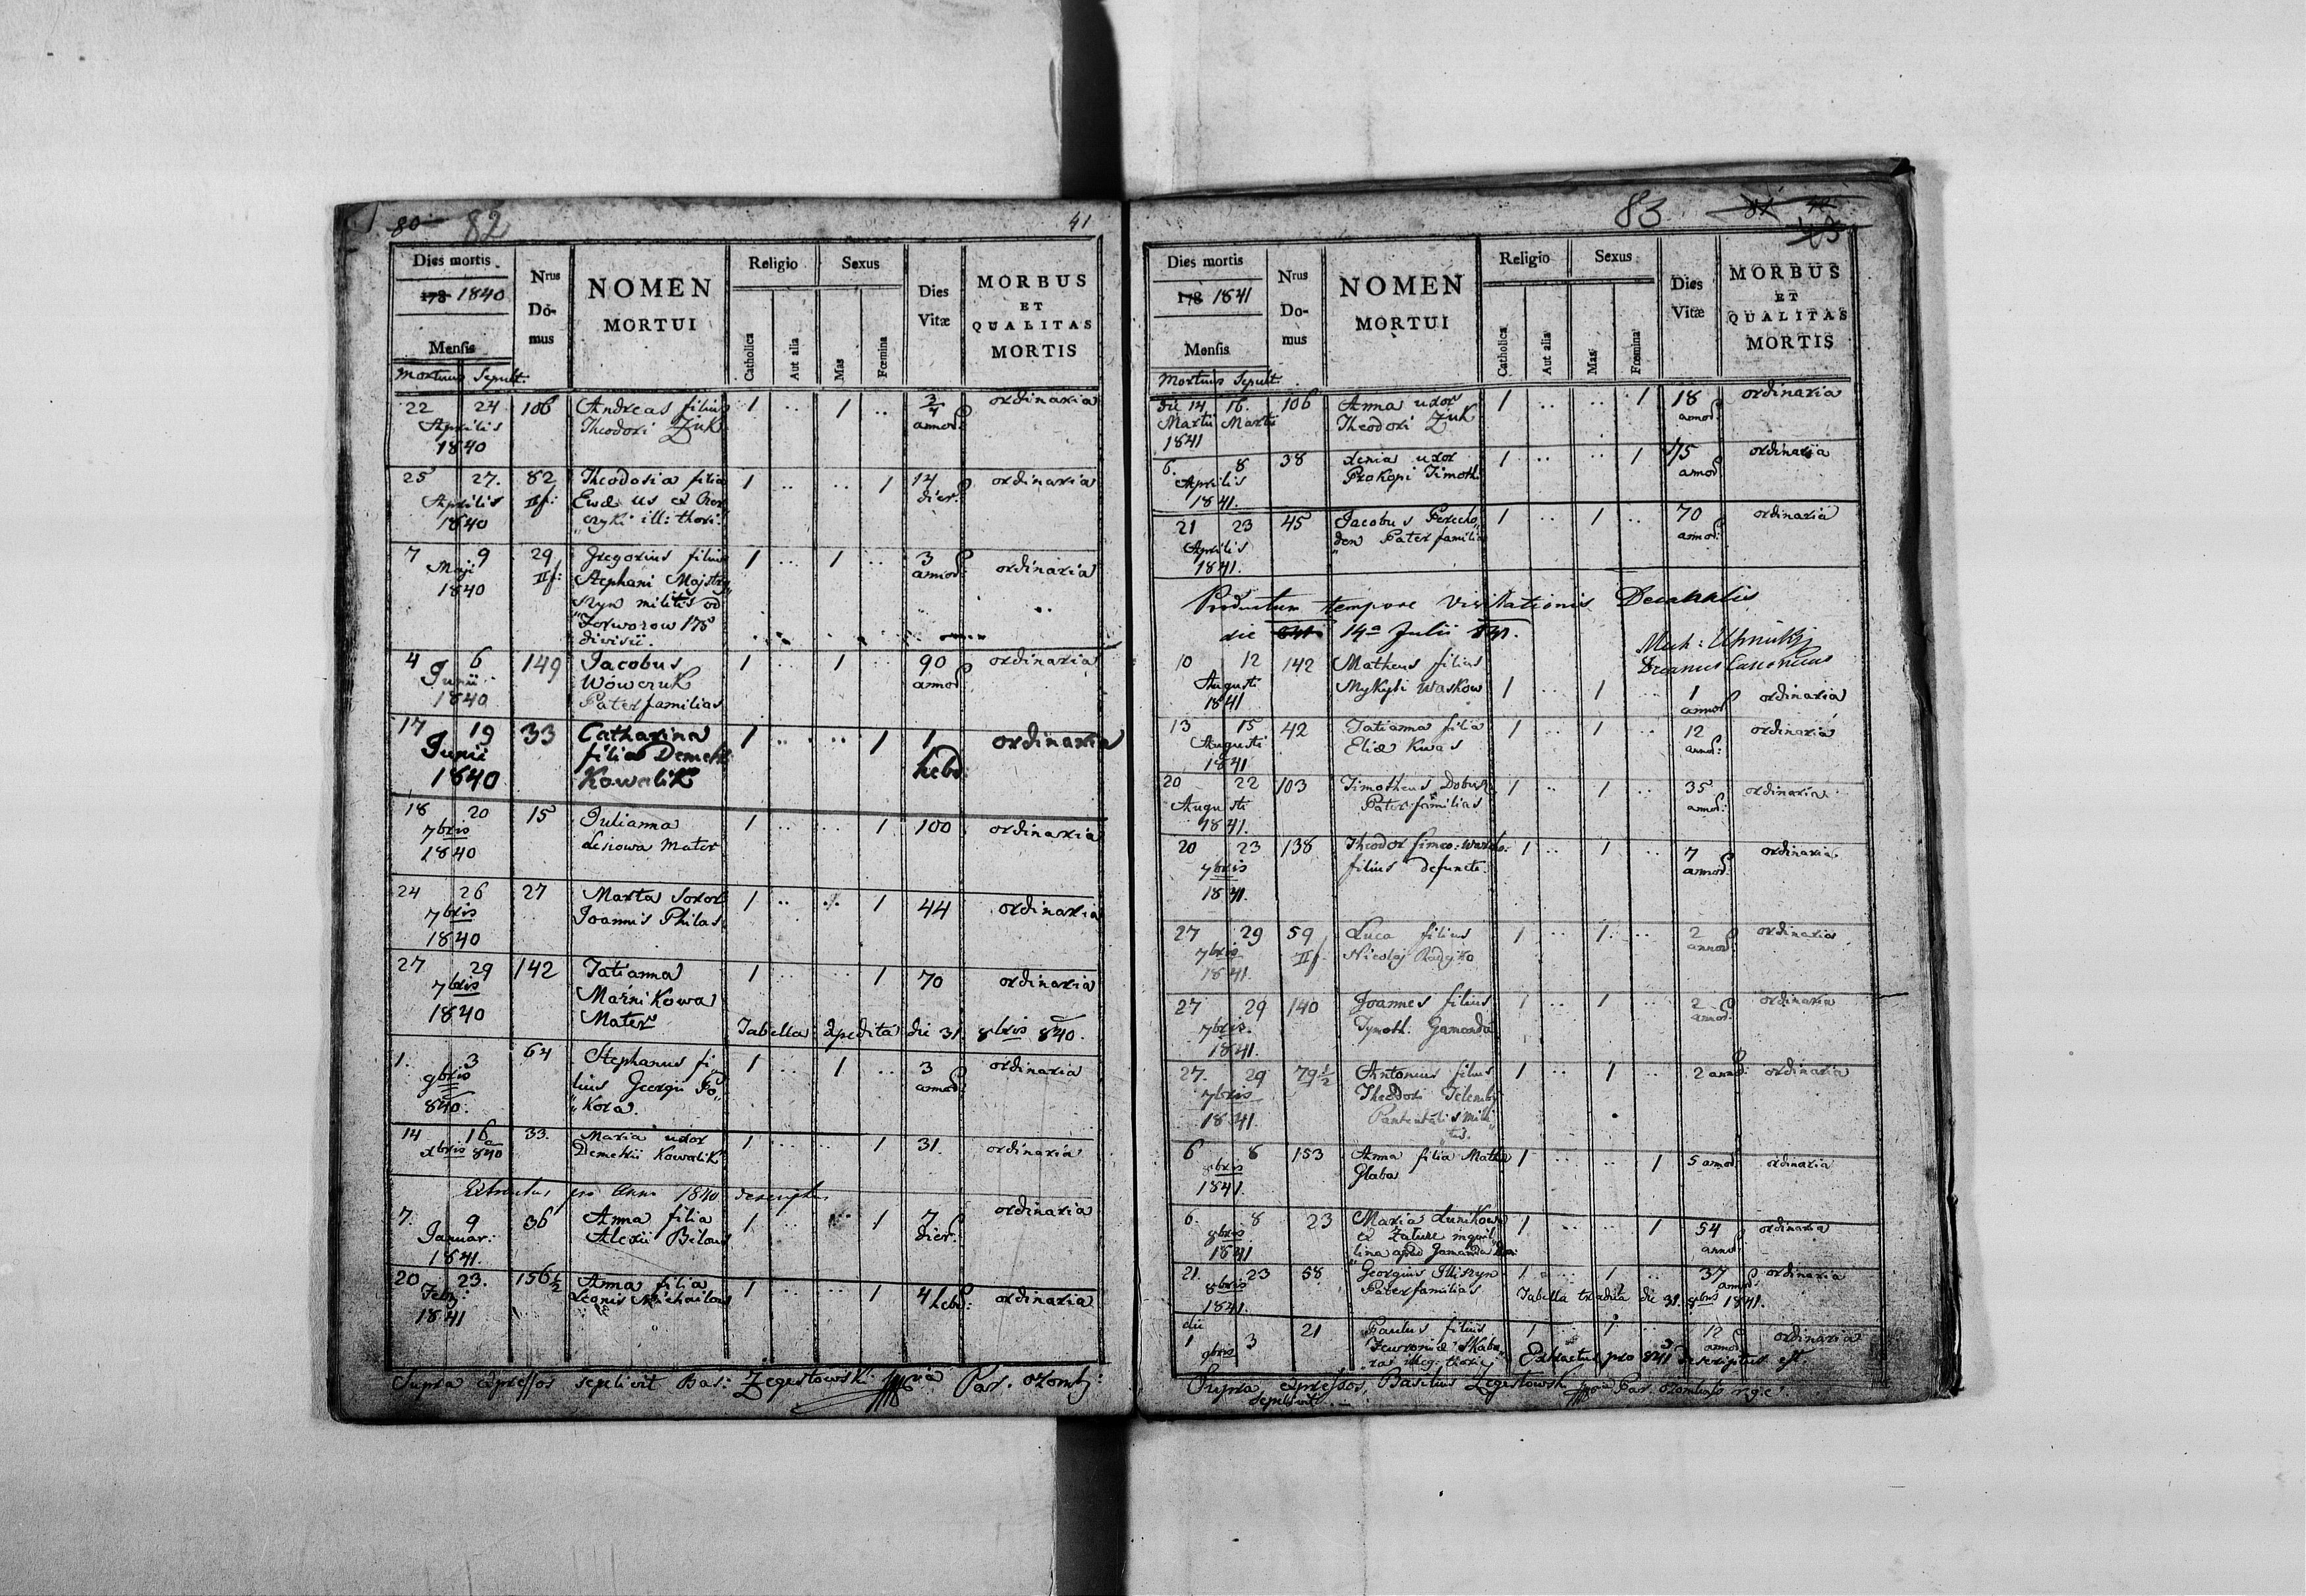 80 82 41
Dies mortis
178 1840
Mensis
Mortuus Sepult.
Nrus
Do-
mus
NOMEN
MORTUI
Religio
Catholica
Aut alia
Sexus
Mas
Fœmina
Dies
Vitæ
MORBUS
ET
QUALITAS
MORTIS
22 24 106 Andreas filius 1 .. 1 .. 3/4 ordinaria
Aprilis Theodori Zuk annor:
1840
25 27. 82 Theodosia filia 1 .. .. 1 14 ordinaria
Aprilis IIf: dier:
1840 illi: thori.
7 9 29 Gregorius filius 1 .. 1 .. 3 ordinaria
Maji IIf: Stephani Majstry annor:
1840 szyn militis
175
divisii.
4 6 149 Jacobus 1 .. 1 .. 90 ordinaria
Junii Wowczuk annor:
1840 Paterfamilias
17 19 33 Catharina 1 .. .. 1 1 ordinaria
Junii filia Demetr hebd:
1840 Kowalik
18 20 15 Julianna 1 .. .. 1 100 ordinaria
7bris Lesiowa Mater
1840
24 26 27 Marta Soror 1 .. .. 1 44 ordinaria
7bris Joannis Philas
1840
27 29 142 Tatianna 1 .. .. 1 70 ordinaria
7bris Maźnikowa
1840 Mater
Tabella expedita die 31 8bris 840.
1. 3 64 Stephanus fi 1 .. 1 .. 3 ordinaria
9bris lius Georgii annor:
840. Kora.
14 16 33. Maria uxor 1 .. .. 1 31. ordinaria
xbris 840 Demetrii Kowalik
Extractus pro Anno 1840 descriptus
7. 9 36 Anna filia 1 .. .. 1 7 ordinaria
Januar: Alexii Bilous dier:
1841.
20 23. 156 1/2 Anna filia 1 .. .. 1 4 hebd: ordinaria
Febr: Leonis Michailous
1841
Supra expressos sepelivit Bas: Zegestowski Par.
83 81
43
Dies mortis
178 1841
Mensis
Mortuus Sepult.
Nrus
Do-
mus
NOMEN
MORTUI
Religio
Catholica
Aut alia
Sexus
Mas
Fœmina
Dies
Vitæ
MORBUS
ET
QUALITAS
MORTIS
die 14 16. 106 Anna uxor 1 .. .. 1 18 ordinaria
Martii Martii Theodori Zuk annor:
1841
6. 8 38 Xenia uxor 1 .. .. 1 75 ordinaria
Aprilis Prokopi Timoth: annor:
1841.
21 23 45 Jacobus Pereho 1 .. 1 .. 70 ordinaria
Aprilis den Paterfamilia annor:
1841.
Productum tempore Visitationis Decanalis
die 14a Julii 841.
Decanus
10 12 142 Matheus filius
Augusti Mykyti Waskow 1 .. 1 .. 1 ordinaria
1841 annor:
13 15 42 Tatianna filia 1 .. 1 .. 12 ordinaria
Augusti Eliæ Kwas annor:
1841
20 22 103 Timotheus Dobusz 1 .. 1 .. 35 ordinaria
Augusti Paterfamilias annor:
1841.
20 23 138 Theodor 1 .. 1 .. 7 ordinaria
7bris filius defuncti. annor:
1841.
27 29 59 Luca filius 1 .. 1. .. 2 ordinaria
7bris IIf. Nicolaj annor:
1841.
27 29 140 Joannes filius 1 .. 1 .. 2 ordinaria
7bris. Tymoth. Gamanda annor:
1841.
27. 29 79 1/2 Antonius filius 1 .. 1 .. 2 annor: ordinaria
7bris Theodori
1841.
6 8 153 Anna filia Mathæ 1 .. .. 1 5 annor: ordinaria
8bris Glaba
1841.
6. 8 23 Maria 1 .. .. 1 54 ordinaria
8bris ex annor:
1841 lina apud Gamanda
21. 23 58 Georgius Illiszyn 1 .. 1 .. 37 ordinaria
8bris Paterfamilias annor:
1841. Tabella tradita die 31. 8bris 1841.
die
1 3 21 Paulus filius 1 .. 1 .. 12 ordinaria
9bris annor:
illeg. thori Extractus pro 841 descriptus est.
Supra expressos Basilius Zegestowski Par.
sepelivit.